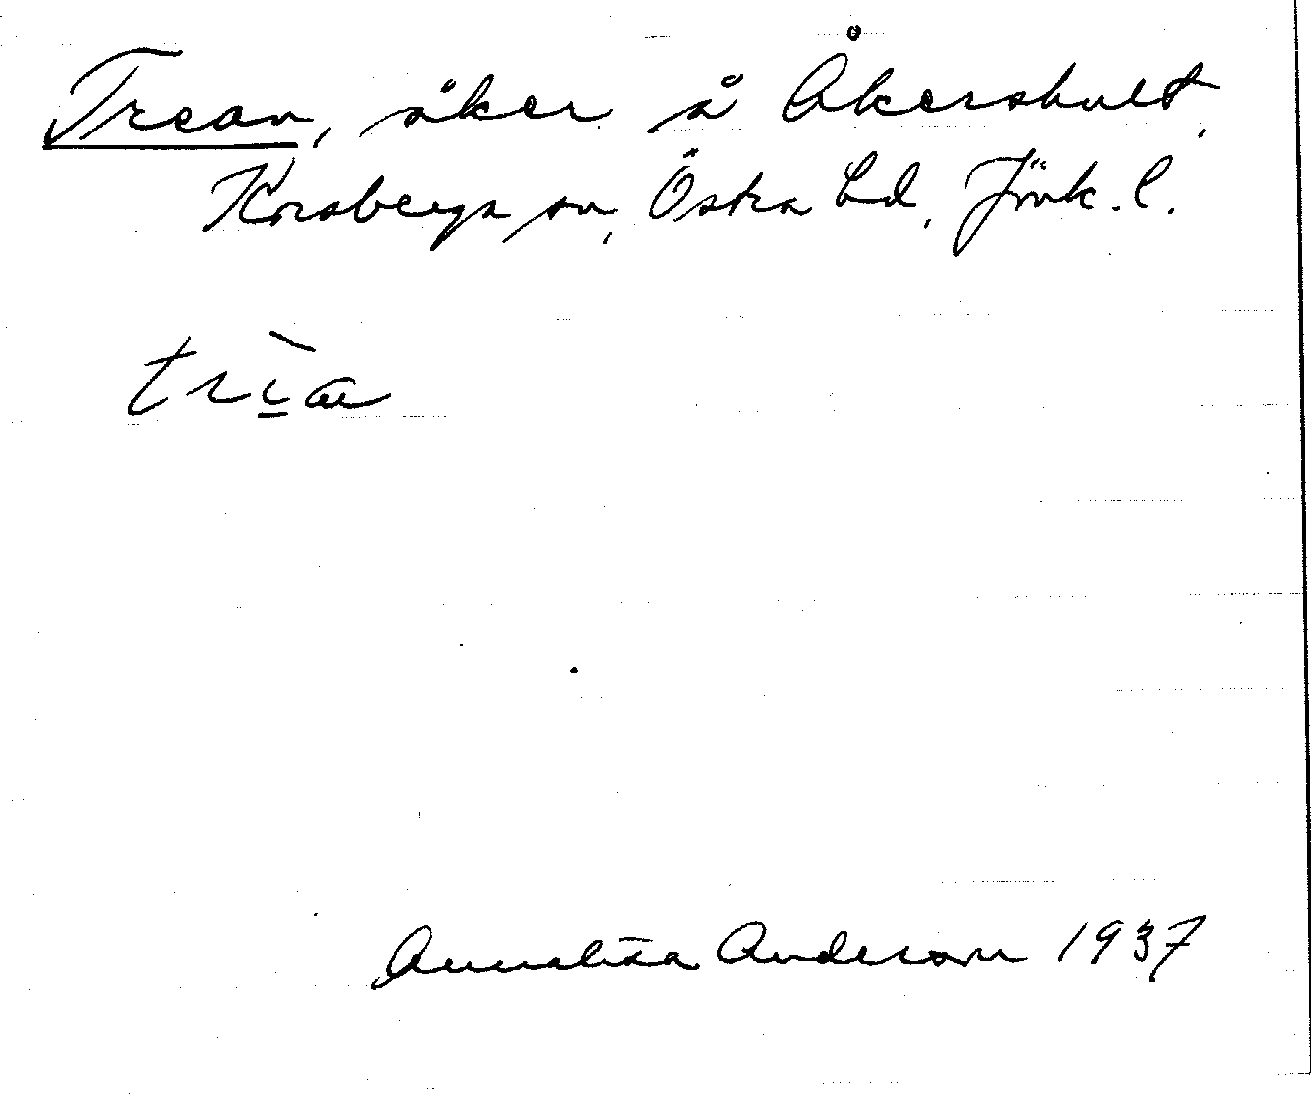 Trean, åker å Åkershult,
Korsberga sn, Östra hd, Jönk. l.
trìa
Annalisa Anderson 1937